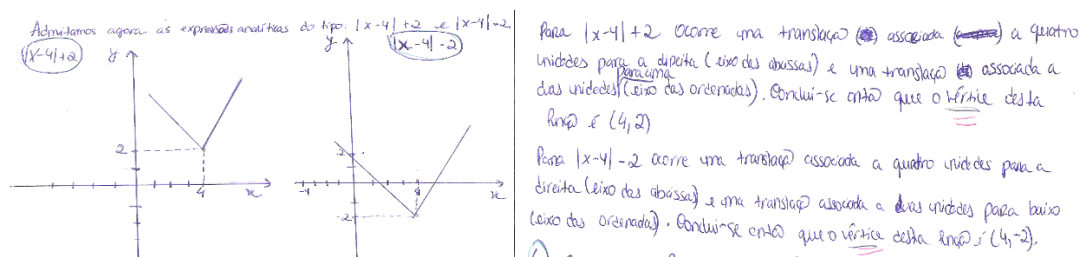 Admitamos agora as expressões analíticas do tipo: |x-4|+2 e |x-4|-2.
|x-4|+2
y
2
4
x
y
|x-4|-2
2
-4
4
x
-2
Para |x-4|+2 ocorre uma translação associada a quatro
unidades para a direita (eixo das abcissas) e uma translação associada a
duas unidades para cima (eixo das ordenadas). Conclui-se então que o vértice desta
função é (4,2)
Para |x-4|-2 ocorre uma translação associada a quatro unidades para a
direita (eixo das abcissas) e uma translação associada a duas unidades para baixo
(eixo das ordenadas). Conclui-se então que o vértice desta função é (4,-2).